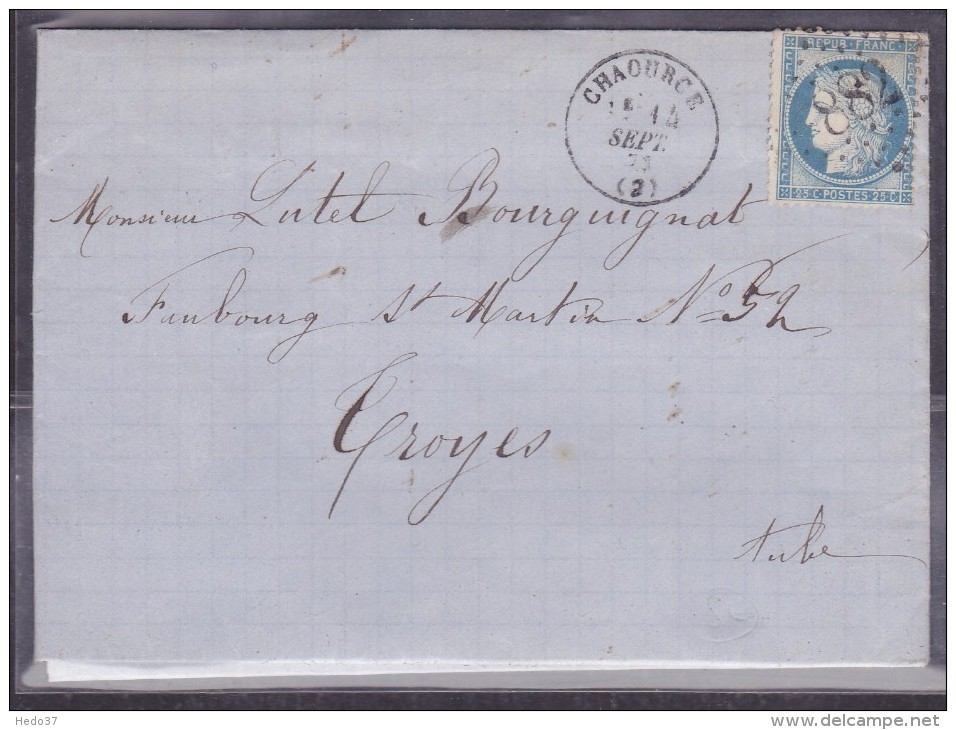 REPUB. FRANC.
882
25 C POSTES 25 C
CHAOURCE
14
SEPT.
(2)
Monsieur Lutel Bourguignat
Faubourg St Martin No 52
Troyes
Aube
Hedo37
www.delcampe.net